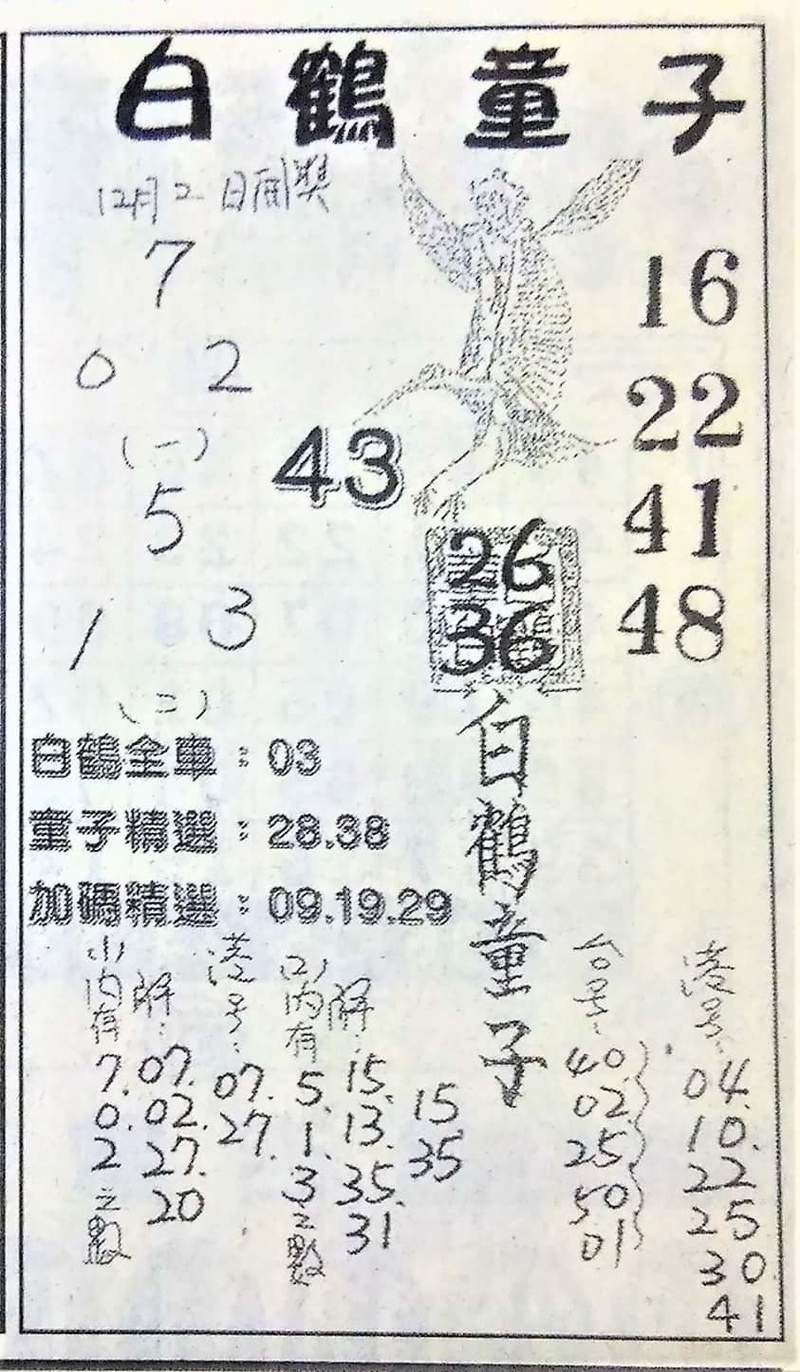 白鶴童子
12月2日開獎
7
0 2
(一)
5
1 3
(二)
43
16
22
41
48
26
36
白鶴童子
白鶴全車：03
童子精選：28.38
加碼精選：09.19.29
(1)內有7.0.2之數
解：07.02.27.20
港号：07.27.
(2)內有5.1.3之數
解：15.13.35.31
15
35
台号：40.02.25.50.01
港号：04.10.22.25.30.41